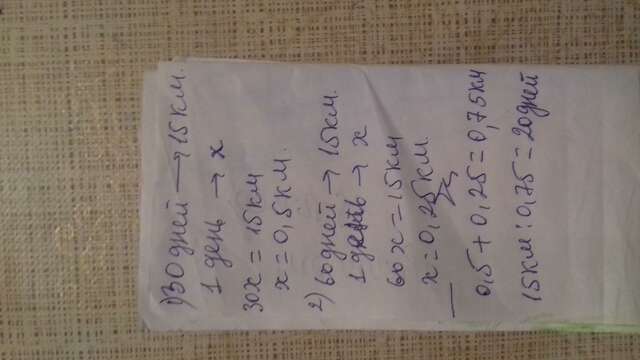 1) 30 дней → 15 км.
1 день → x
30x = 15 км
x = 0,5 км.
2) 60 дней → 15 км.
1 день → x
60 x = 15 км
x = 0,25 км.
0,5 + 0,25 = 0,75 км
15 км : 0,75 = 20 дней